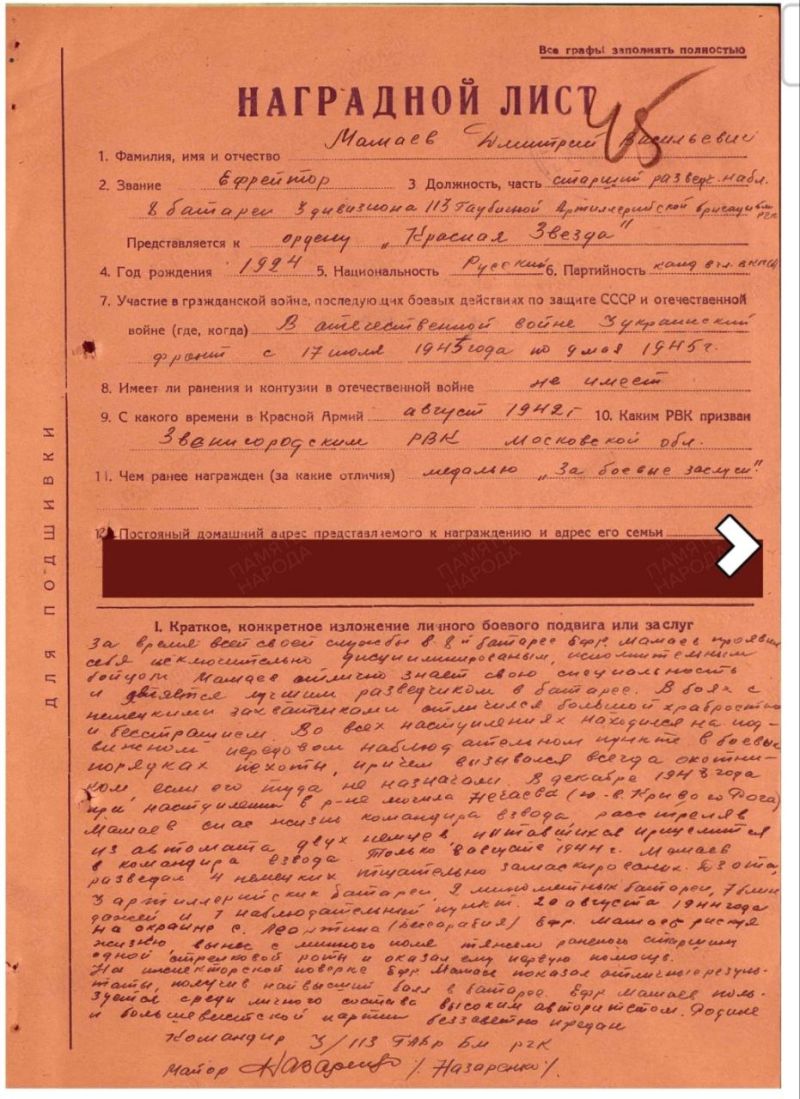 Все графы заполнять полностью
НАГРАДНОЙ ЛИСТ
45
1. Фамилия, имя и отчество Мамаев Дмитрий Васильевич
2. Звание Ефрейтор 3 Должность, часть старший разведч. набл.
8 батареи 3 дивизиона 113 Гаубичной Артиллерийской бригады бм РГК
Представляется к ордену „Красная Звезда"
4. Год рождения 1924 5. Национальность Русский 6. Партийность канд в чл. ВКП(б)
7. Участие в гражданской войне, последующих боевых действиях по защите СССР и отечественной
войне (где, когда) В отечественной войне 3 украинский
фронт с 17 июля 1943 года по 9 мая 1945 г.
8. Имеет ли ранения и контузии в отечественной войне не имеет
9. С какого времени в Красной Армий август 1942 г 10. Каким РВК призван
Звенигородским РВК Московской обл.
11. Чем ранее награжден (за какие отличия) медалью „За боевые заслуги"
Постояный домашний адрес представляемого к награждению и адрес его семьи
ПАМЯТЬ НАРОДА
ДЛЯ ПОДШИВКИ
I. Краткое, конкретное изложение личного боевого подвига или заслуг
За время всей своей службы в 8й батарее Ефр. Мамаев проявил
себя исключительно дисциплинированым, исполнительным
бойцом Мамаев отлично знает свою специальность
и является лучшим разведчиком в батарее. В боях с
немецкими захватчиками отличился большой храбростью
и бесстрашием. Во всех наступлениях находился на под-
вижном передовом наблюдательном пункте в боевых
порядках пехоты, причем вызывался всегда охотни-
ком если его туда не назначали. В декабре 1943 года
при наступлении в р-не могила Нечаева (ю.-в. Кривого Рога)
Мамаев спас жизнь командира взвода, расстреляв
из автомата двух немцев пытавшихся прицелится
в командира взвода. Только в августе 1944 г. Мамаев
разведал 4 немецких тщательно замаскированых ДЗОТа,
3 артиллерийских батареи, 2 минометных батареи, 7 блин
дажей и 1 наблюдательный пункт. 20 августа 1944 года
на окраине с. Леонтина (Бессарабия) Ефр. Мамаев рискуя
жизнью, вынес с минного поля тяжело раненого старшину
одной стрелковой роты и оказал ему первую помощь.
На инспекторской поверке Ефр Мамаев показал отличные резуль-
таты, получив наивысший балл в батарее. Ефр. Мамаев поль-
зуется среди личного состава высоким авторитетом. Родине
и большевистской партии беззаветно предан
Командир 3/113 ГАБр БМ РГК
Майор Назаренко / Назаренко /